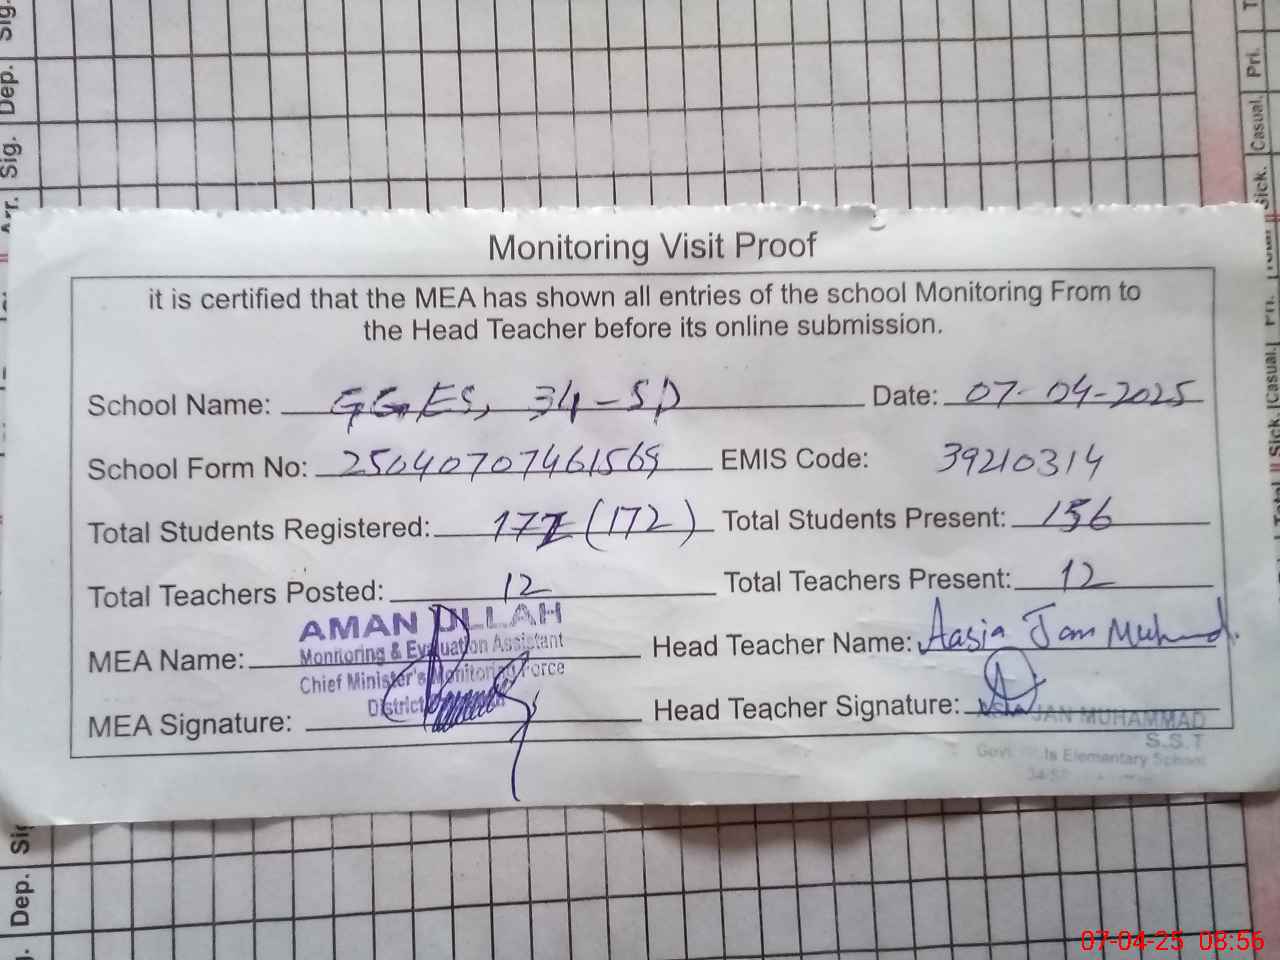 Sig.
Dep.
Sig.
Arr.
T
Pri.
Casual.
Sick.
Monitoring Visit Proof
it is certified that the MEA has shown all entries of the school Monitoring From to
the Head Teacher before its online submission.
School Name: GGES, 34-SD Date: 07-04-2025
School Form No: 25040707461569 EMIS Code: 39210314
Total Students Registered: (172) Total Students Present: 156
Total Teachers Posted: 12 Total Teachers Present: 12
AMAN ULLAH
Monitoring & Evaluation Assistant
Chief Minister's Monitoring Force
District
MEA Name: Head Teacher Name: Aasia Jan Muhmd.
MEA Signature: Head Teacher Signature:
JAN MUHAMMAD
S.S.T
Govt. Elementary School
Casual.
Sick.
Sig
Dep.
07-04-25 08:56